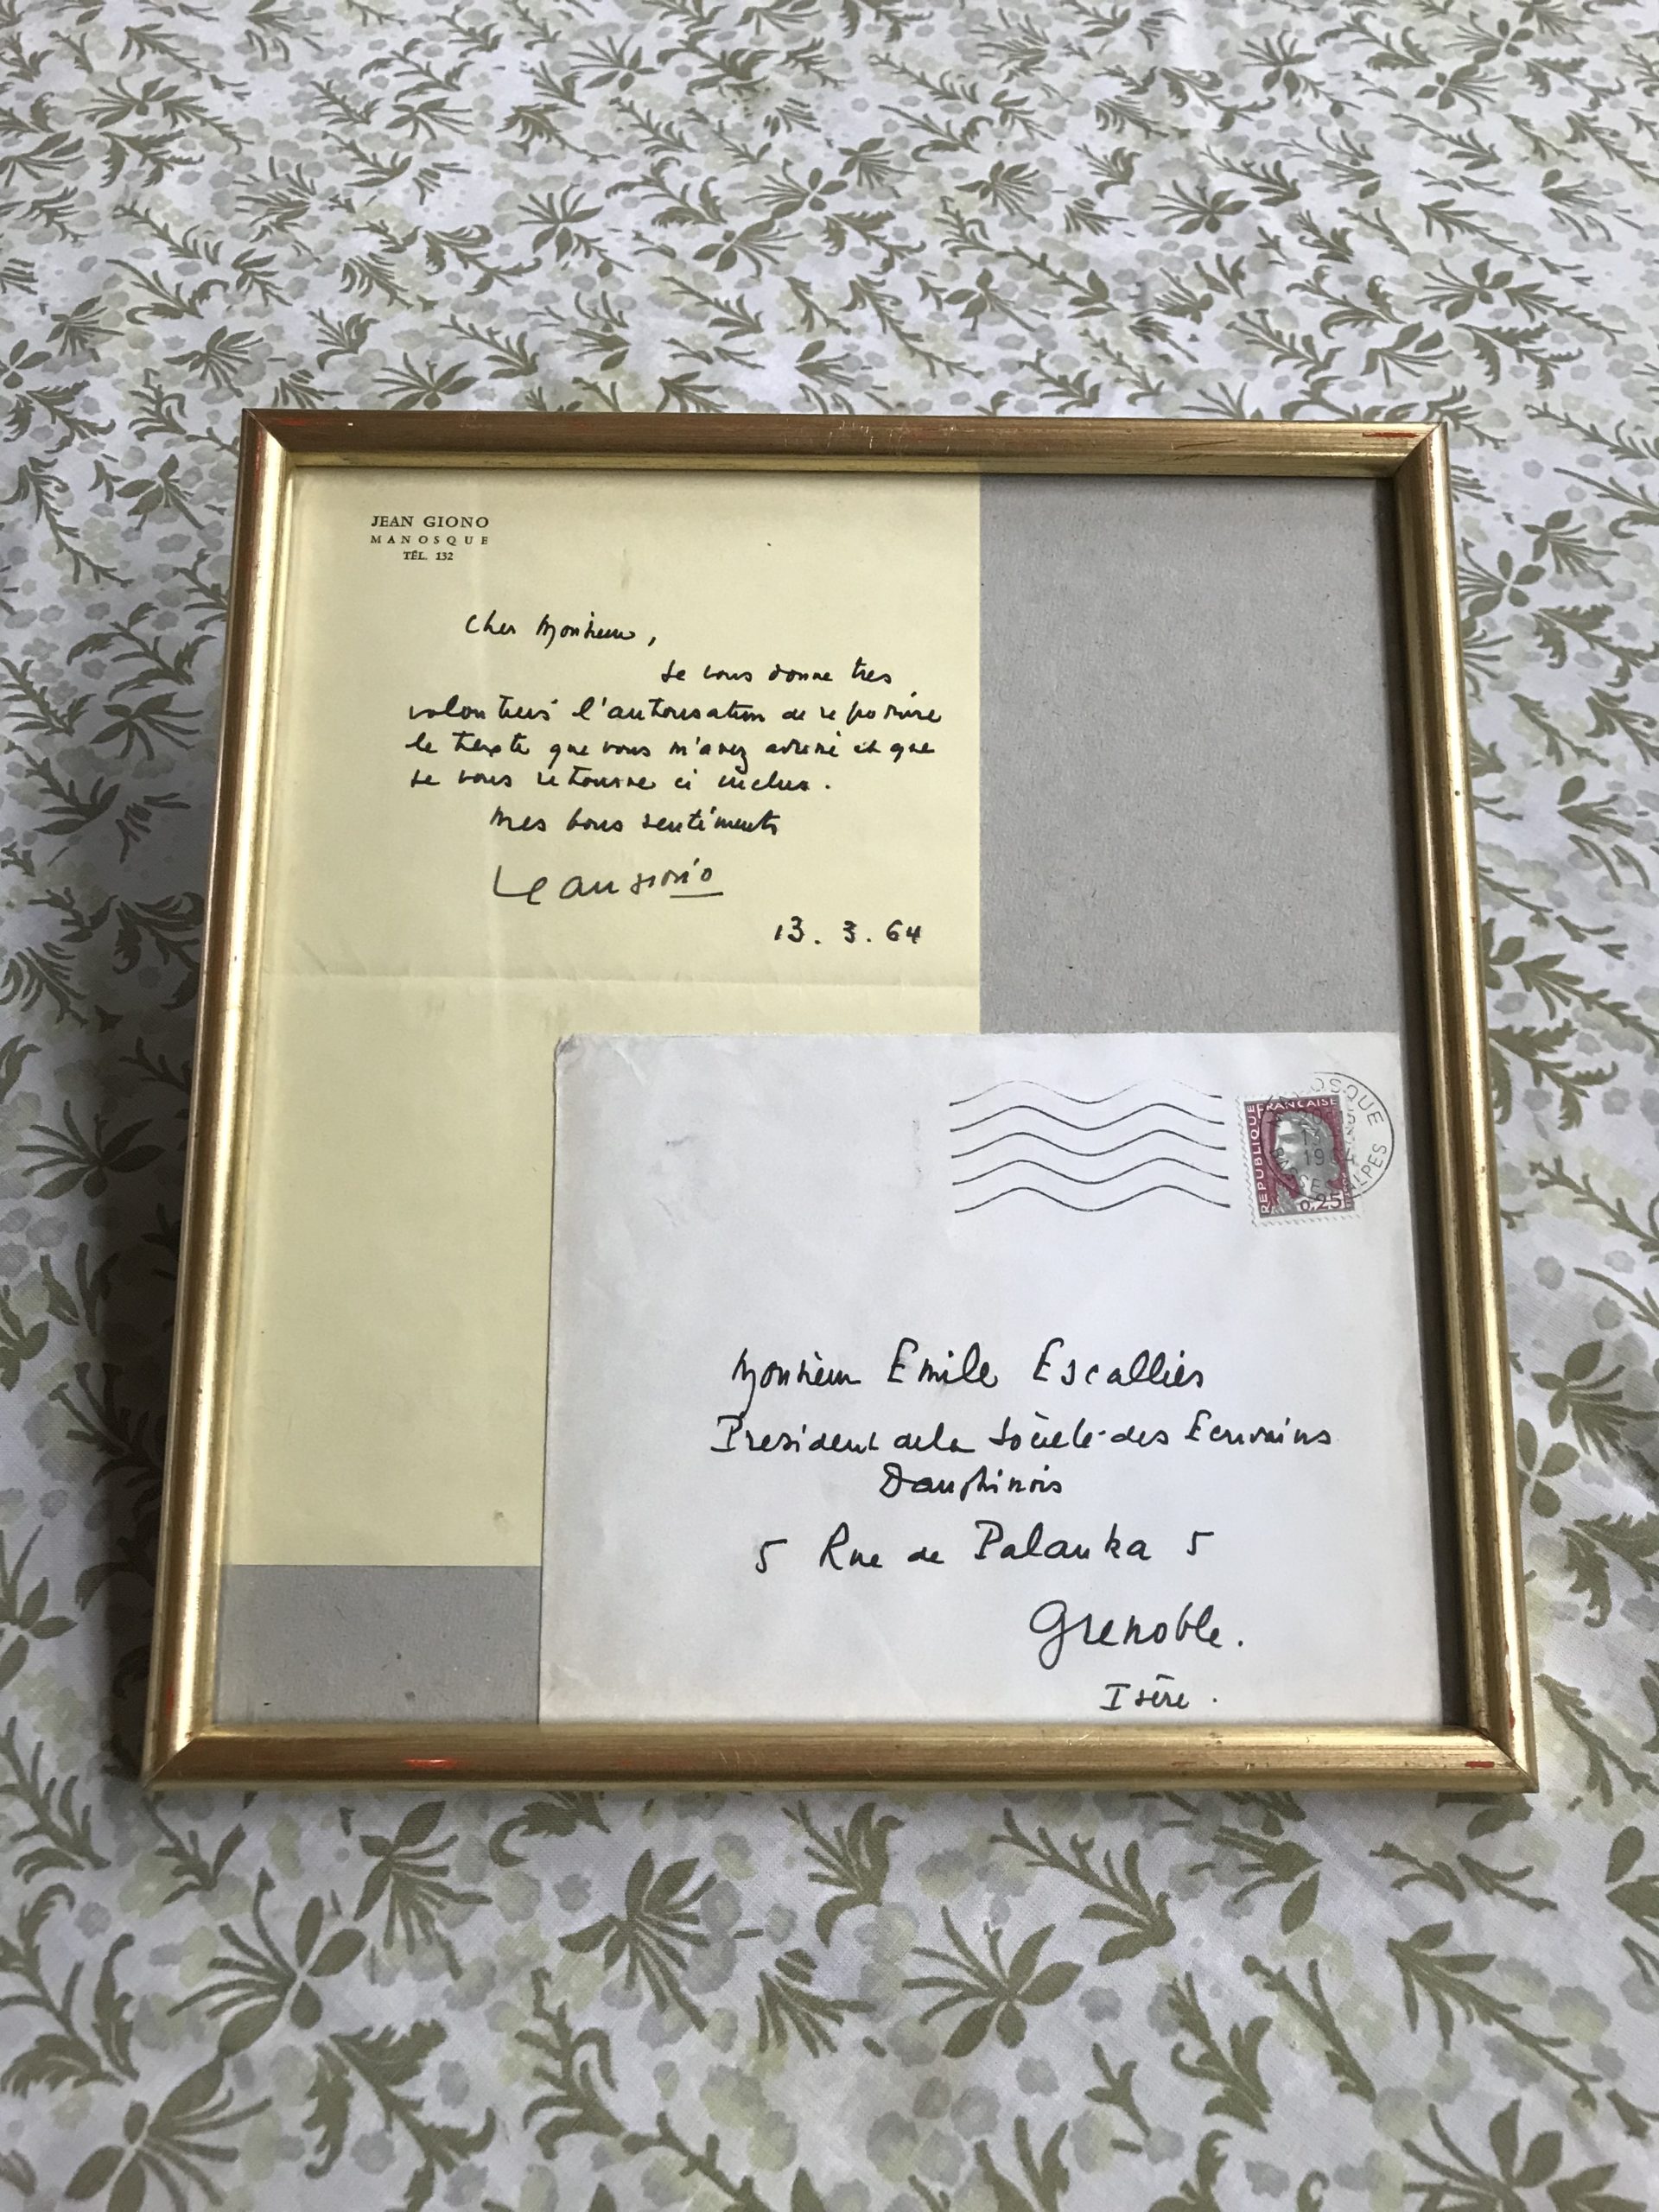 JEAN GIONO
MANOSQUE
TÉL. 132
Cher Monsieur,
Je vous donne tres
volontiers l'autorisation de reproduire
le texte que vous m'avez adressé et que
je vous retourne ci inclus.
Mes bons sentiments
Jean Giono
13. 3. 64
MANOSQUE
BASSES ALPES
REPUBLIQUE FRANCAISE
0,25
Monsieur Emile Escallier
President de la Société des Ecrivains
Dauphinois
5 Rue de Palanka 5
Grenoble.
Isère.